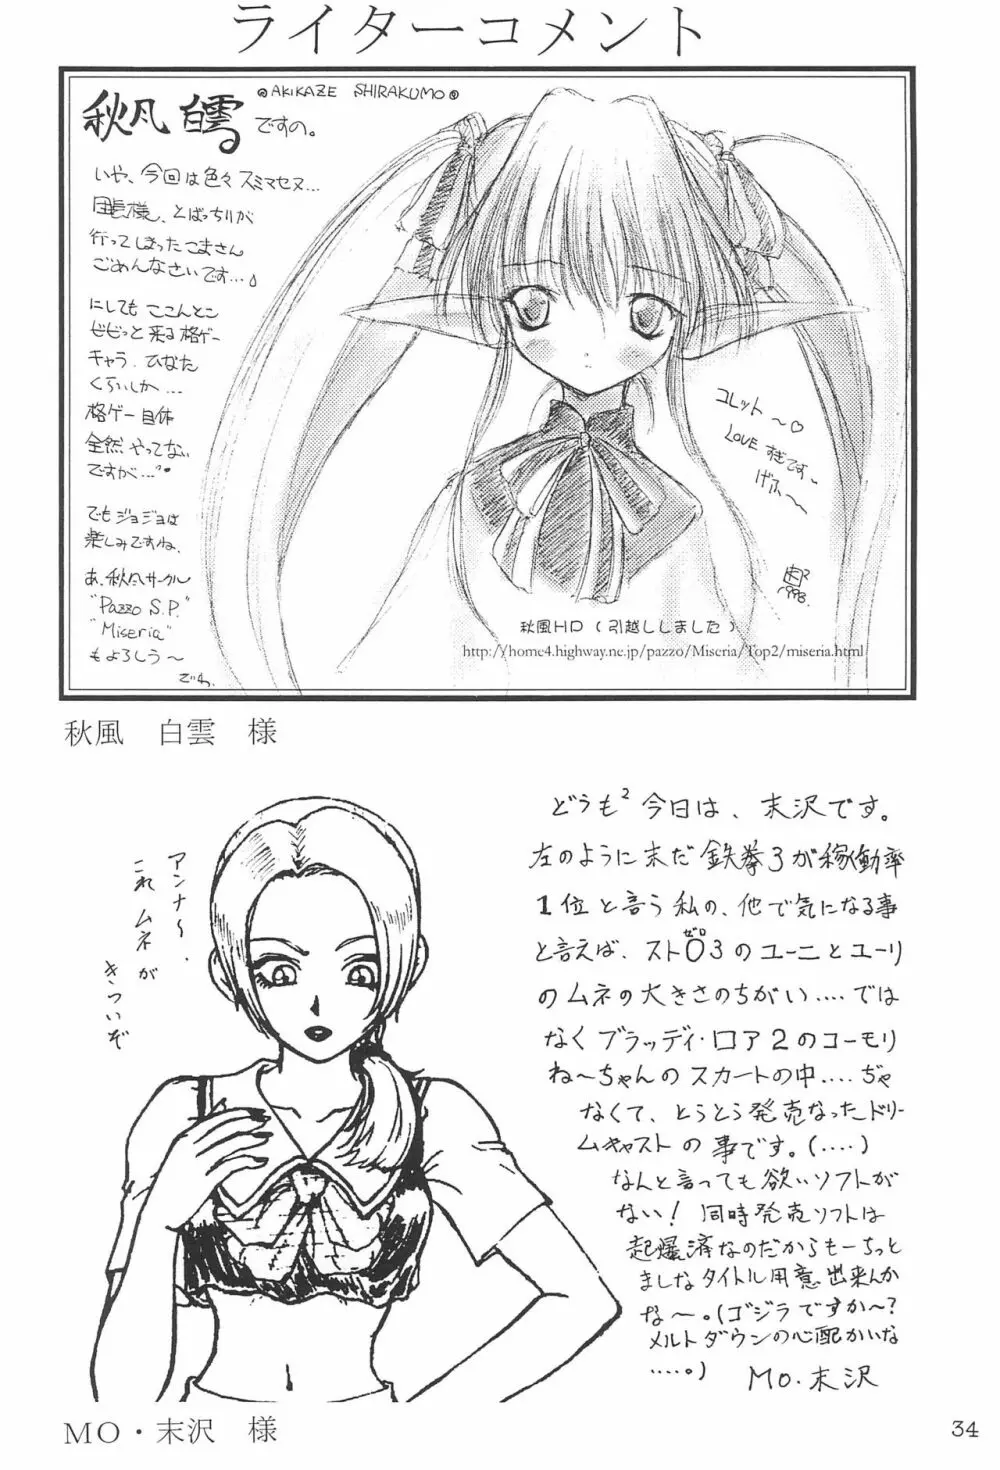 ライターコメント
秋風 白雲
◎AKIKAZE SHIRAKUMO◎
ですの。
いや、今回は色々スミマセヌ…
団長様、とばっちりが
行ってしまったこまさん
ごめんなさいです…♪
にしても ここんとこ
ビビッと来る格ゲー
キャラ、ひなた
くらいしか…
格ゲー自体
全然やってない
ですが…
でもジョジョは
楽しみですね、
あ、秋風サークル
"Pazzo S.P."
"Miseria"
もよろしう〜
でわ、
コレット〜♡
LOVEすぎです、
げふ〜
1998.
秋風HP(引越ししました)
http://home4.highway.ne.jp/pazzo/Miseria/Top2/miseria.html
秋風 白雲 様
アンナ〜、
これ ムネが
きついぞ
どうも² 今日は、末沢です。
左のように末だ 鉄拳3が稼働率
1位と言う私の、他で気になる事
と言えば、ストZERO3のユーニとユーリ
のムネの大きさのちがい….では
なく ブラッディ・ロア2のコーモリ
ね〜ちゃんのスカートの中….ぢゃ
なくて、とうとう発売なったドリー
ムキャストの事です。(….)
なんと言っても欲いソフトが
ない! 同時発売ソフトは
起爆済なのだからもーちっと
ましなタイトル用意出来んか
な〜。(ゴジラですか〜?
メルトダウンの心配かいな
…..。)
MO.末沢
MO・末沢 様
34